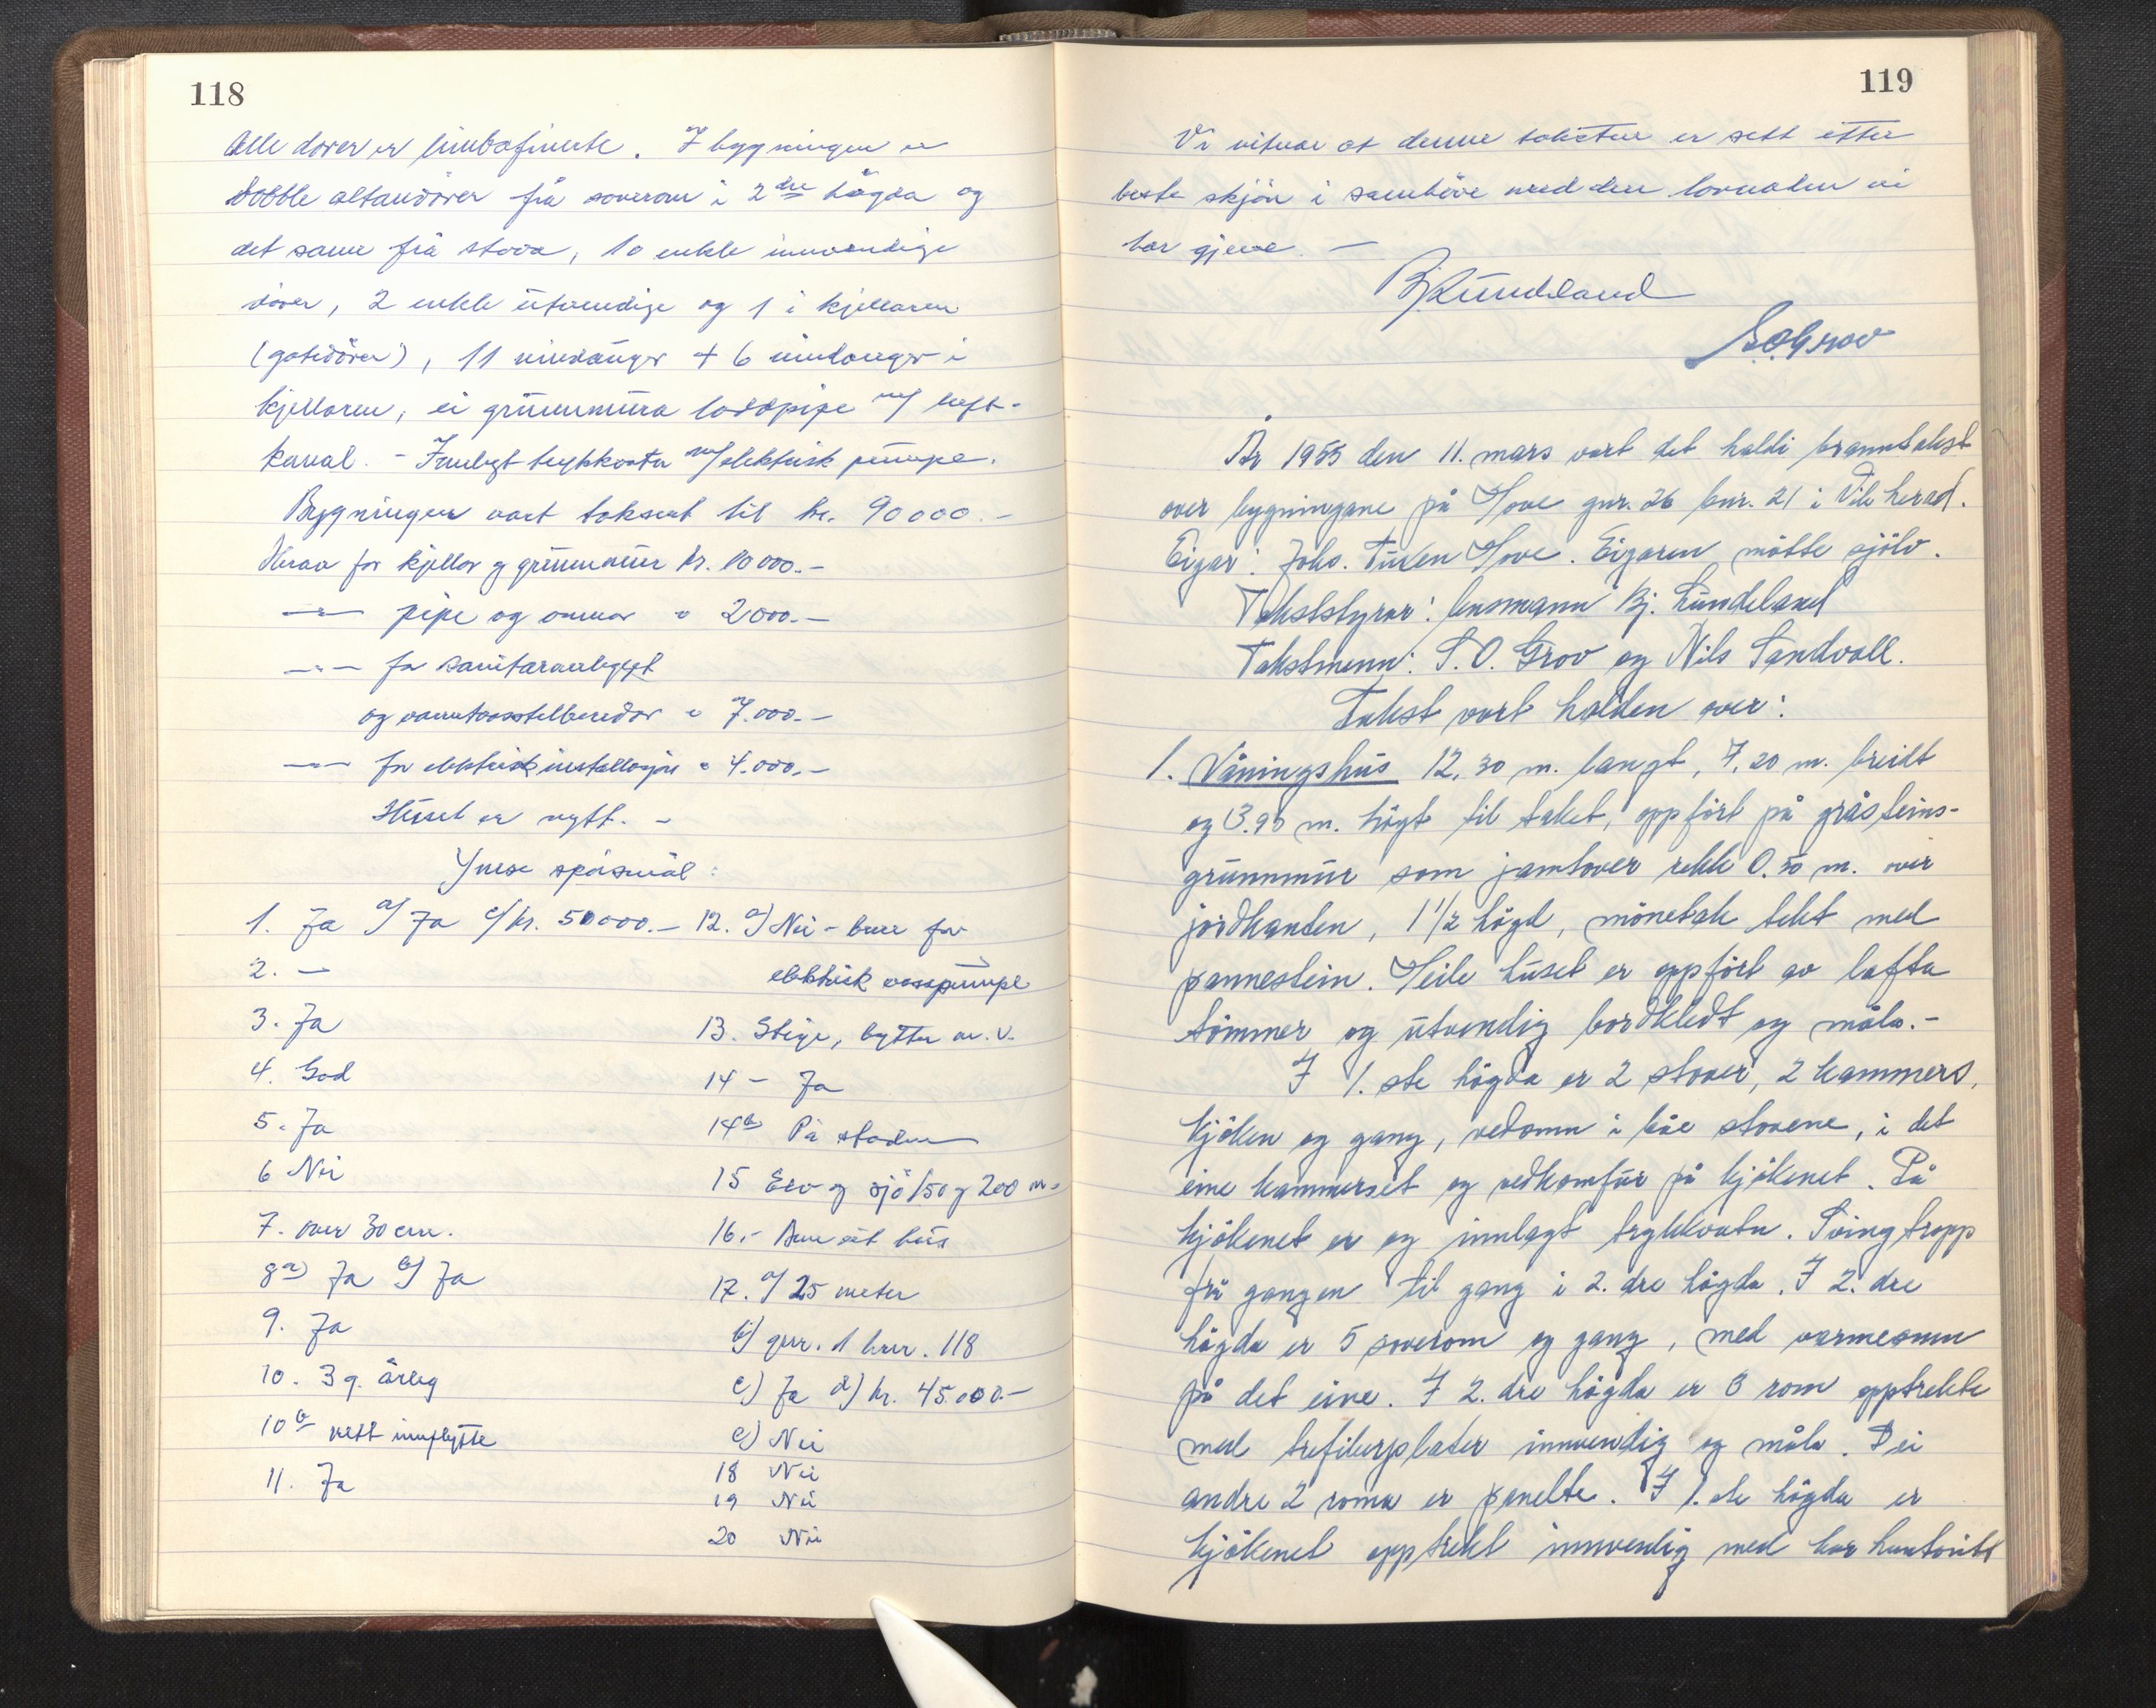 118
Alle dører er limbafinerte. I bygningen er
dobble altandörer frå soverom i 2dre högda og
det same frå stova, 10 enkle innvendige
dörer, 2 enkle ütvendige og 1 i kjellaren
(gatedörer), 11 vindauger + 6 vindauger i
kjellaren, ei grünnmüra loddpipe m/ luft-
kanal. - Innlagt trykkvatn m/elektrisk pümpe.
Bygningen vart taksert til kr. 90000.-
Herav for kjellar og grünnmür kr. 10000.-
—"— pipe og omnar " 2000.-
—"— for sanitæranlegget
og varmtvasstelberedar " 7.000.-
—"— for elektrisk installasjon " 4.000.-
Hüset er nytt. -
Ymse spörsmål:
1. Ja a/ Ja c/ kr. 50000.-
2. —
3. Ja
4. God
5. Ja
6 Nei
7. over 30 cm.
8 a) Ja b/ Ja
9. Ja
10. 3 g. årleg
10 b nett innflytte
11. Ja
12. a) Nei - bare for
elektrisk vasspümpe
13. Stige, bytter m. v.
14 - Ja
14 b På staden
15 Elv og sjö 150 og 200 m.
16.- Bare eit hüs
17. a/ 25 meter
b) gnr. 1 bnr. 118
c) Ja d) kr. 45.000.-
e) Nei
18 Nei
19 Nei
20 Nei
119
Vi vitnar at denne taksten er sett etter
beste skjön i samhöve med den lovnaden vi
har gjeve. —
Bj Lündeland
S.O.Grov
År 1955 den 11. mars vart det haldi branntakst
over bygningane på Hove gnr. 26 bnr. 21 i Vik herad.
Eigar: Johs. Tüven Hove. Eigaren mötte sjölv.
Takststyrar: lensmann Bj. Lündeland
Takstmenn: S. O. Grov og Nils Sandvoll.
Takst vart halden over:
1. Våningshüs 12,30 m. langt, 7,20 m. breidt
og 3.90 m. högt til taket, oppfört på gråsteins-
grünnmür som jamtover rekk 0.50 m. over
jordkanten, 1 1/2 högd, mönetak tekt med
pannestein. Heile hüset er oppfört av lafta
tömmer og ütvendig bordkledt og måla.-
I 1. ste högda er 2 stover, 2 kammers,
kjöken og gang, vedomn i båe stovene, i det
eine kammerset og vedkomfür på kjökenet. På
kjökenet er og innlagt trykkvatn. Svingtropp
frå gangen til gang i 2. dre högda. I 2. dre
högda er 5 soverom og gang, med varmeomn
på det eine. I 2. dre högda er 3 rom opptrekte
med trefiberplater innvendig og måla. Dei
andre 2 roma er panelte. I 1. ste högda er
kjökenet opptrekt innvendig med har huntonitt